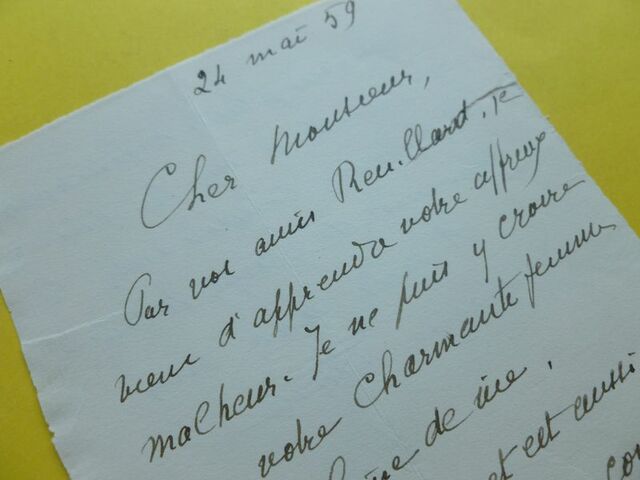 24 mai 59
Cher Monsieur,
Par vos amis Reuillard, je
viens d'apprendre votre affreux
malheur. Je ne puis y croire
votre charmante femme
de vie,
et est aussi